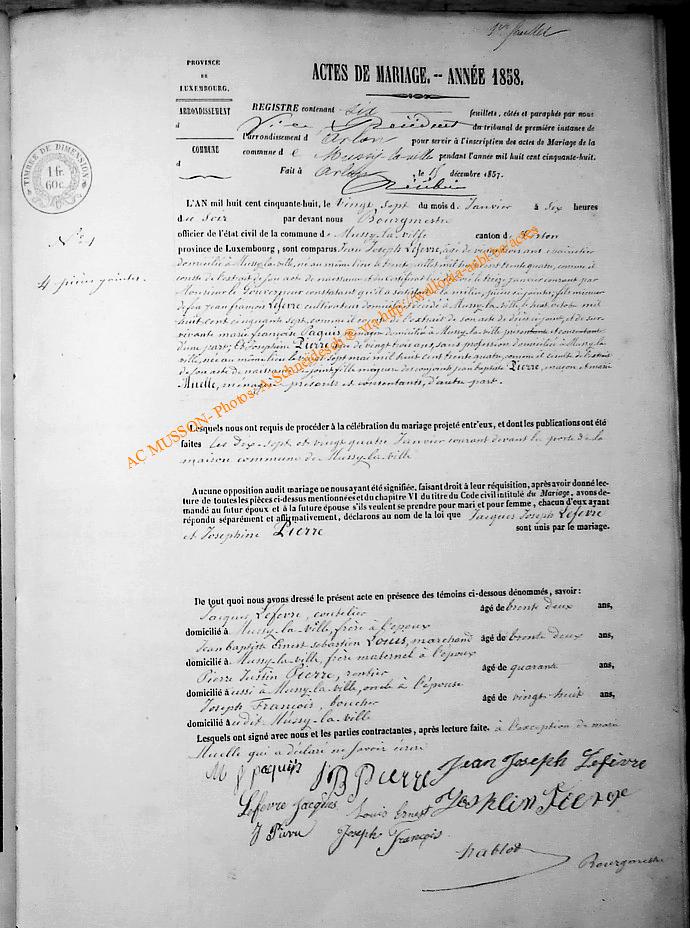 1er feuillet
PROVINCE
DE
LUXEMBOURG.
ACTES DE MARIAGE. -- ANNÉE 1858.
ARRONDISSEMENT
d
COMMUNE
d
REGISTRE contenant six feuillets, côtés et paraphés par nous
Vice Président du tribunal de première instance de
l'arrondissement d'Arlon pour servir à l'inscription des actes de Mariage de la
commune d e Mussy-la-ville pendant l'année mil huit cent cinquante-huit.
Fait à Arlon le 15 décembre 1857.
TIMBRE DE DIMENSION
1 fr.
60c.
N° 1
4 pièces jointes.
L'AN mil huit cent cinquante-huit, le vingt sept du mois de Janvier à six heures
du soir par devant nous Bourgmestre
officier de l'état civil de la commune de Mussy-la-ville canton de Virton
province de Luxembourg, sont comparus Jean Joseph Lefèvre, âgé de vingt trois ans
domicilié à Mussy-la-ville, né au même lieu le trente mil huit cent trente quatre, comme il
conste de l'extrait de son acte de naissance et du certificat le treize janvier courant par
Monsieur le Gouverneur constatant qu'il a satisfait à la milice, pièces ci jointes, fils mineur
de feu Jean françois Lefèvre cultivateur domicilié et décédé à Mussy-la-ville le huit mil
huit cent cinquante sept, comme il conste de l'extrait de son acte de décès ci joint, et de sur-
vivante marie françoise Paquis domicilié à Mussy-la-ville présente et consentante
d'une part; Et Josephine Pierre, âgée de vingt trois ans, sans profession domiciliée à Mussy-la-
ville, née au même lieu le vingt sept mai mil huit cent trente quatre, comme il conste de l'extrait
de son acte de naissance ci joint, fille majeure des conjoints jean baptiste Pierre, maçon et marie
Muelle, ménagère présents et consentants, d'autre part.
Lesquels nous ont requis de procéder à la célébration du mariage projeté entr'eux, et dont les publications ont été
faites les dix-sept et vingt quatre Janvier courant devant la porte de la
maison commune de Mussy-la-ville
Aucune opposition audit mariage ne nous ayant été signifiée, faisant droit à leur réquisition, après avoir donné lec-
ture de toutes les pièces ci-dessus mentionnées et du chapitre VI du titre du Code civil intitulé du Mariage, avons de-
mandé au futur époux et à la future épouse s'ils veulent se prendre pour mari et pour femme, chacun d'eux ayant
répondu séparément et affirmativement, déclarons au nom de la loi que Jacques Joseph Lefèvre
et Josephine Pierre sont unis par le mariage.
De tout quoi nous avons dressé le présent acte en présence des témoins ci-dessous dénommés, savoir :
Jacques Lefevre, coutelier âgé de trente deux ans,
domicilié à Mussy-la-ville, frère à l'époux
Jean baptiste Ernest sebastien Louis, marchand âgé de trente deux ans,
domicilié à Mussy-la-ville, frère maternel à l'époux
Pierre Justin Pierre, rentier âgé de quarante ans,
domicilié aussi à Mussy-la-ville, oncle à l'épouse
Joseph François, boucher âgé de vingt-huit ans,
domicilié audit Mussy-la-ville
Lesquels ont signé avec nous et les parties contractantes, après lecture faite. à l'exception de marie
Muelle qui a déclaré ne savoir écrire
M f paquis JB Pierre Jean Joseph Lefèvre
Lefevre Jacques Louis Ernest
Joseph François
hablot Bourgmestre
AC MUSSON- Photos: A. Schneidesch © via http://wallonia-asbl.eu-actes